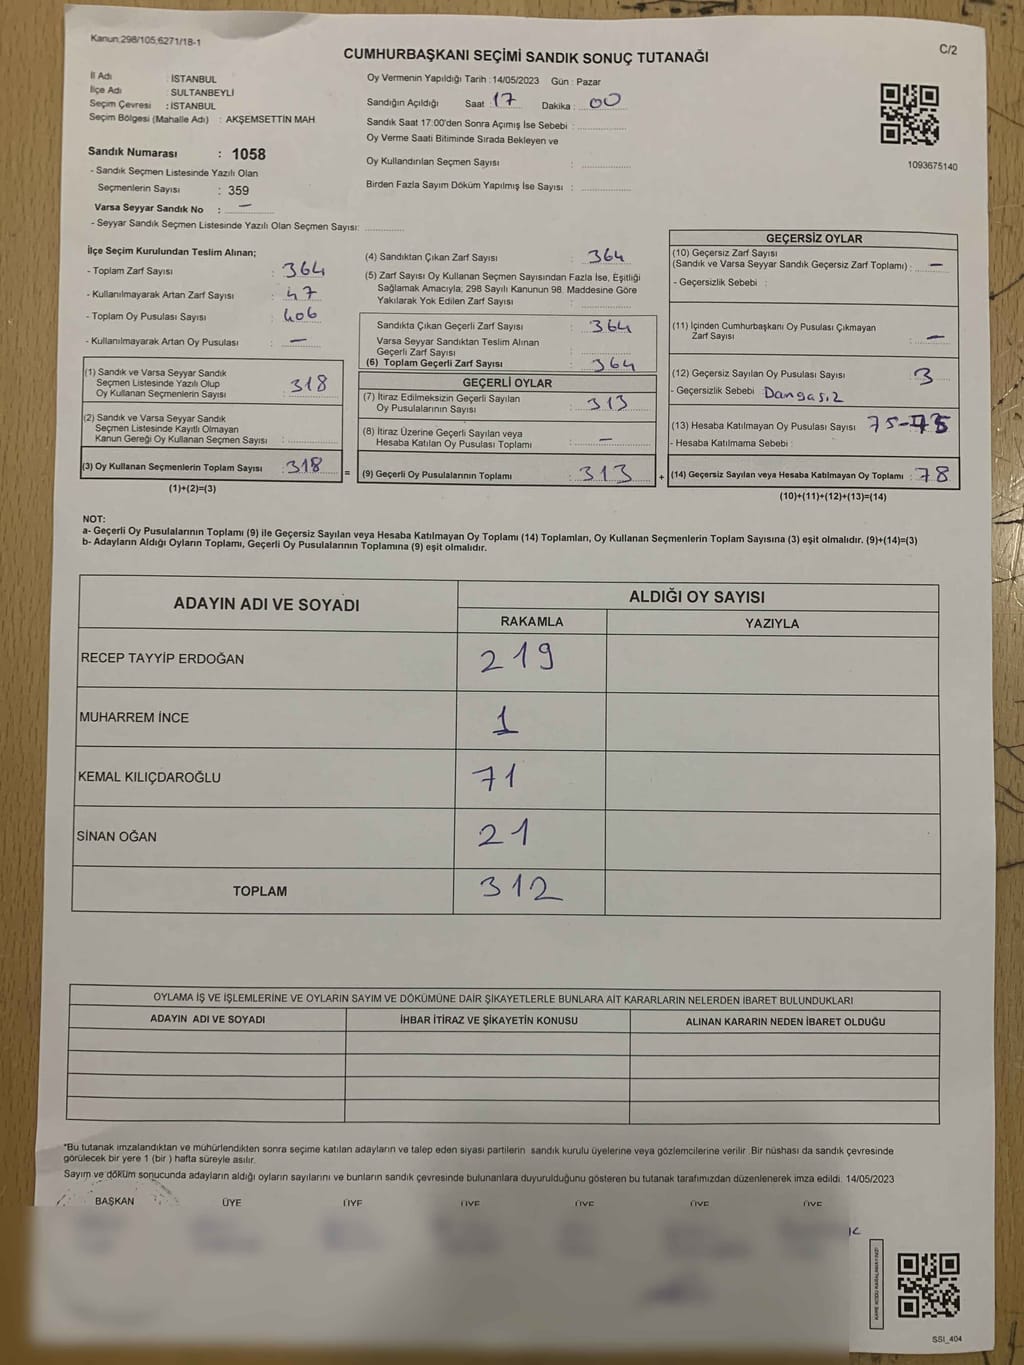 Kanun:298/105;6271/18-1
C/2
CUMHURBAŞKANI SEÇİMİ SANDIK SONUÇ TUTANAĞI
İl Adı : İSTANBUL
İlçe Adı : SULTANBEYLİ
Seçim Çevresi : İSTANBUL
Seçim Bölgesi (Mahalle Adı) : AKŞEMSETTİN MAH.
Sandık Numarası : 1058
- Sandık Seçmen Listesinde Yazılı Olan
Seçmenlerin Sayısı : 359
Varsa Seyyar Sandık No : —
- Seyyar Sandık Seçmen Listesinde Yazılı Olan Seçmen Sayısı: ..............
Oy Vermenin Yapıldığı Tarih : 14/05/2023 Gün : Pazar
Sandığın Açıldığı Saat : 17 Dakika : 00
Sandık Saat 17:00'den Sonra Açımış İse Sebebi : ..............
Oy Verme Saati Bitiminde Sırada Bekleyen ve
Oy Kullandırılan Seçmen Sayısı : ..............
Birden Fazla Sayım Döküm Yapılmış İse Sayısı : ..............
1093675140
İlçe Seçim Kurulundan Teslim Alınan;
- Toplam Zarf Sayısı : 364
- Kullanılmayarak Artan Zarf Sayısı : 47
- Toplam Oy Pusulası Sayısı : 406
- Kullanılmayarak Artan Oy Pusulası : —
(1) Sandık ve Varsa Seyyar Sandık
Seçmen Listesinde Yazılı Olup
Oy Kullanan Seçmenlerin Sayısı : 318
(2) Sandık ve Varsa Seyyar Sandık
Seçmen Listesinde Kayıtlı Olmayan
Kanun Gereği Oy Kullanan Seçmen Sayısı : ..............
(3) Oy Kullanan Seçmenlerin Toplam Sayısı : 318
(1)+(2)=(3)
(4) Sandıktan Çıkan Zarf Sayısı : 364
(5) Zarf Sayısı Oy Kullanan Seçmen Sayısından Fazla İse, Eşitliği
Sağlamak Amacıyla; 298 Sayılı Kanunun 98. Maddesine Göre
Yakılarak Yok Edilen Zarf Sayısı : ..............
Sandıkta Çıkan Geçerli Zarf Sayısı : 364
Varsa Seyyar Sandıktan Teslim Alınan
Geçerli Zarf Sayısı : ..............
(6) Toplam Geçerli Zarf Sayısı : 364
GEÇERLİ OYLAR
(7) İtiraz Edilmeksizin Geçerli Sayılan
Oy Pusulalarının Sayısı : 313
(8) İtiraz Üzerine Geçerli Sayılan veya
Hesaba Katılan Oy Pusulası Toplamı : —
= (9) Geçerli Oy Pusulalarının Toplamı : 313
GEÇERSİZ OYLAR
(10) Geçersiz Zarf Sayısı
(Sandık ve Varsa Seyyar Sandık Geçersiz Zarf Toplamı) : —
- Geçersizlik Sebebi :
(11) İçinden Cumhurbaşkanı Oy Pusulası Çıkmayan
Zarf Sayısı : —
(12) Geçersiz Sayılan Oy Pusulası Sayısı : 3
- Geçersizlik Sebebi : Dangasız
(13) Hesaba Katılmayan Oy Pusulası Sayısı : 75
- Hesaba Katılmama Sebebi :
+ (14) Geçersiz Sayılan veya Hesaba Katılmayan Oy Toplamı : 78
(10)+(11)+(12)+(13)=(14)
NOT:
a- Geçerli Oy Pusulalarının Toplamı (9) ile Geçersiz Sayılan veya Hesaba Katılmayan Oy Toplamı (14) Toplamları, Oy Kullanan Seçmenlerin Toplam Sayısına (3) eşit olmalıdır. (9)+(14)=(3)
b- Adayların Aldığı Oyların Toplamı, Geçerli Oy Pusulalarının Toplamına (9) eşit olmalıdır.
ADAYIN ADI VE SOYADI ALDIĞI OY SAYISI
RAKAMLA YAZIYLA
RECEP TAYYİP ERDOĞAN 219
MUHARREM İNCE 1
KEMAL KILIÇDAROĞLU 71
SİNAN OĞAN 21
TOPLAM 312
OYLAMA İŞ VE İŞLEMLERİNE VE OYLARIN SAYIM VE DÖKÜMÜNE DAİR ŞİKAYETLERLE BUNLARA AİT KARARLARIN NELERDEN İBARET BULUNDUKLARI
ADAYIN ADI VE SOYADI İHBAR İTİRAZ VE ŞİKAYETİN KONUSU ALINAN KARARIN NEDEN İBARET OLDUĞU
*Bu tutanak imzalandıktan ve mühürlendikten sonra seçime katılan adayların ve talep eden siyasi partilerin sandık kurulu üyelerine veya gözlemcilerine verilir .Bir nüshası da sandık çevresinde
görülecek bir yere 1 (bir ) hafta süreyle asılır.
Sayım ve döküm sonucunda adayların aldığı oyların sayılarını ve bunların sandık çevresinde bulunanlara duyurulduğunu gösteren bu tutanak tarafımızdan düzenlenerek imza edildi. 14/05/2023
BAŞKAN ÜYE ÜYE ÜYE ÜYE ÜYE ÜYE
SSI_404